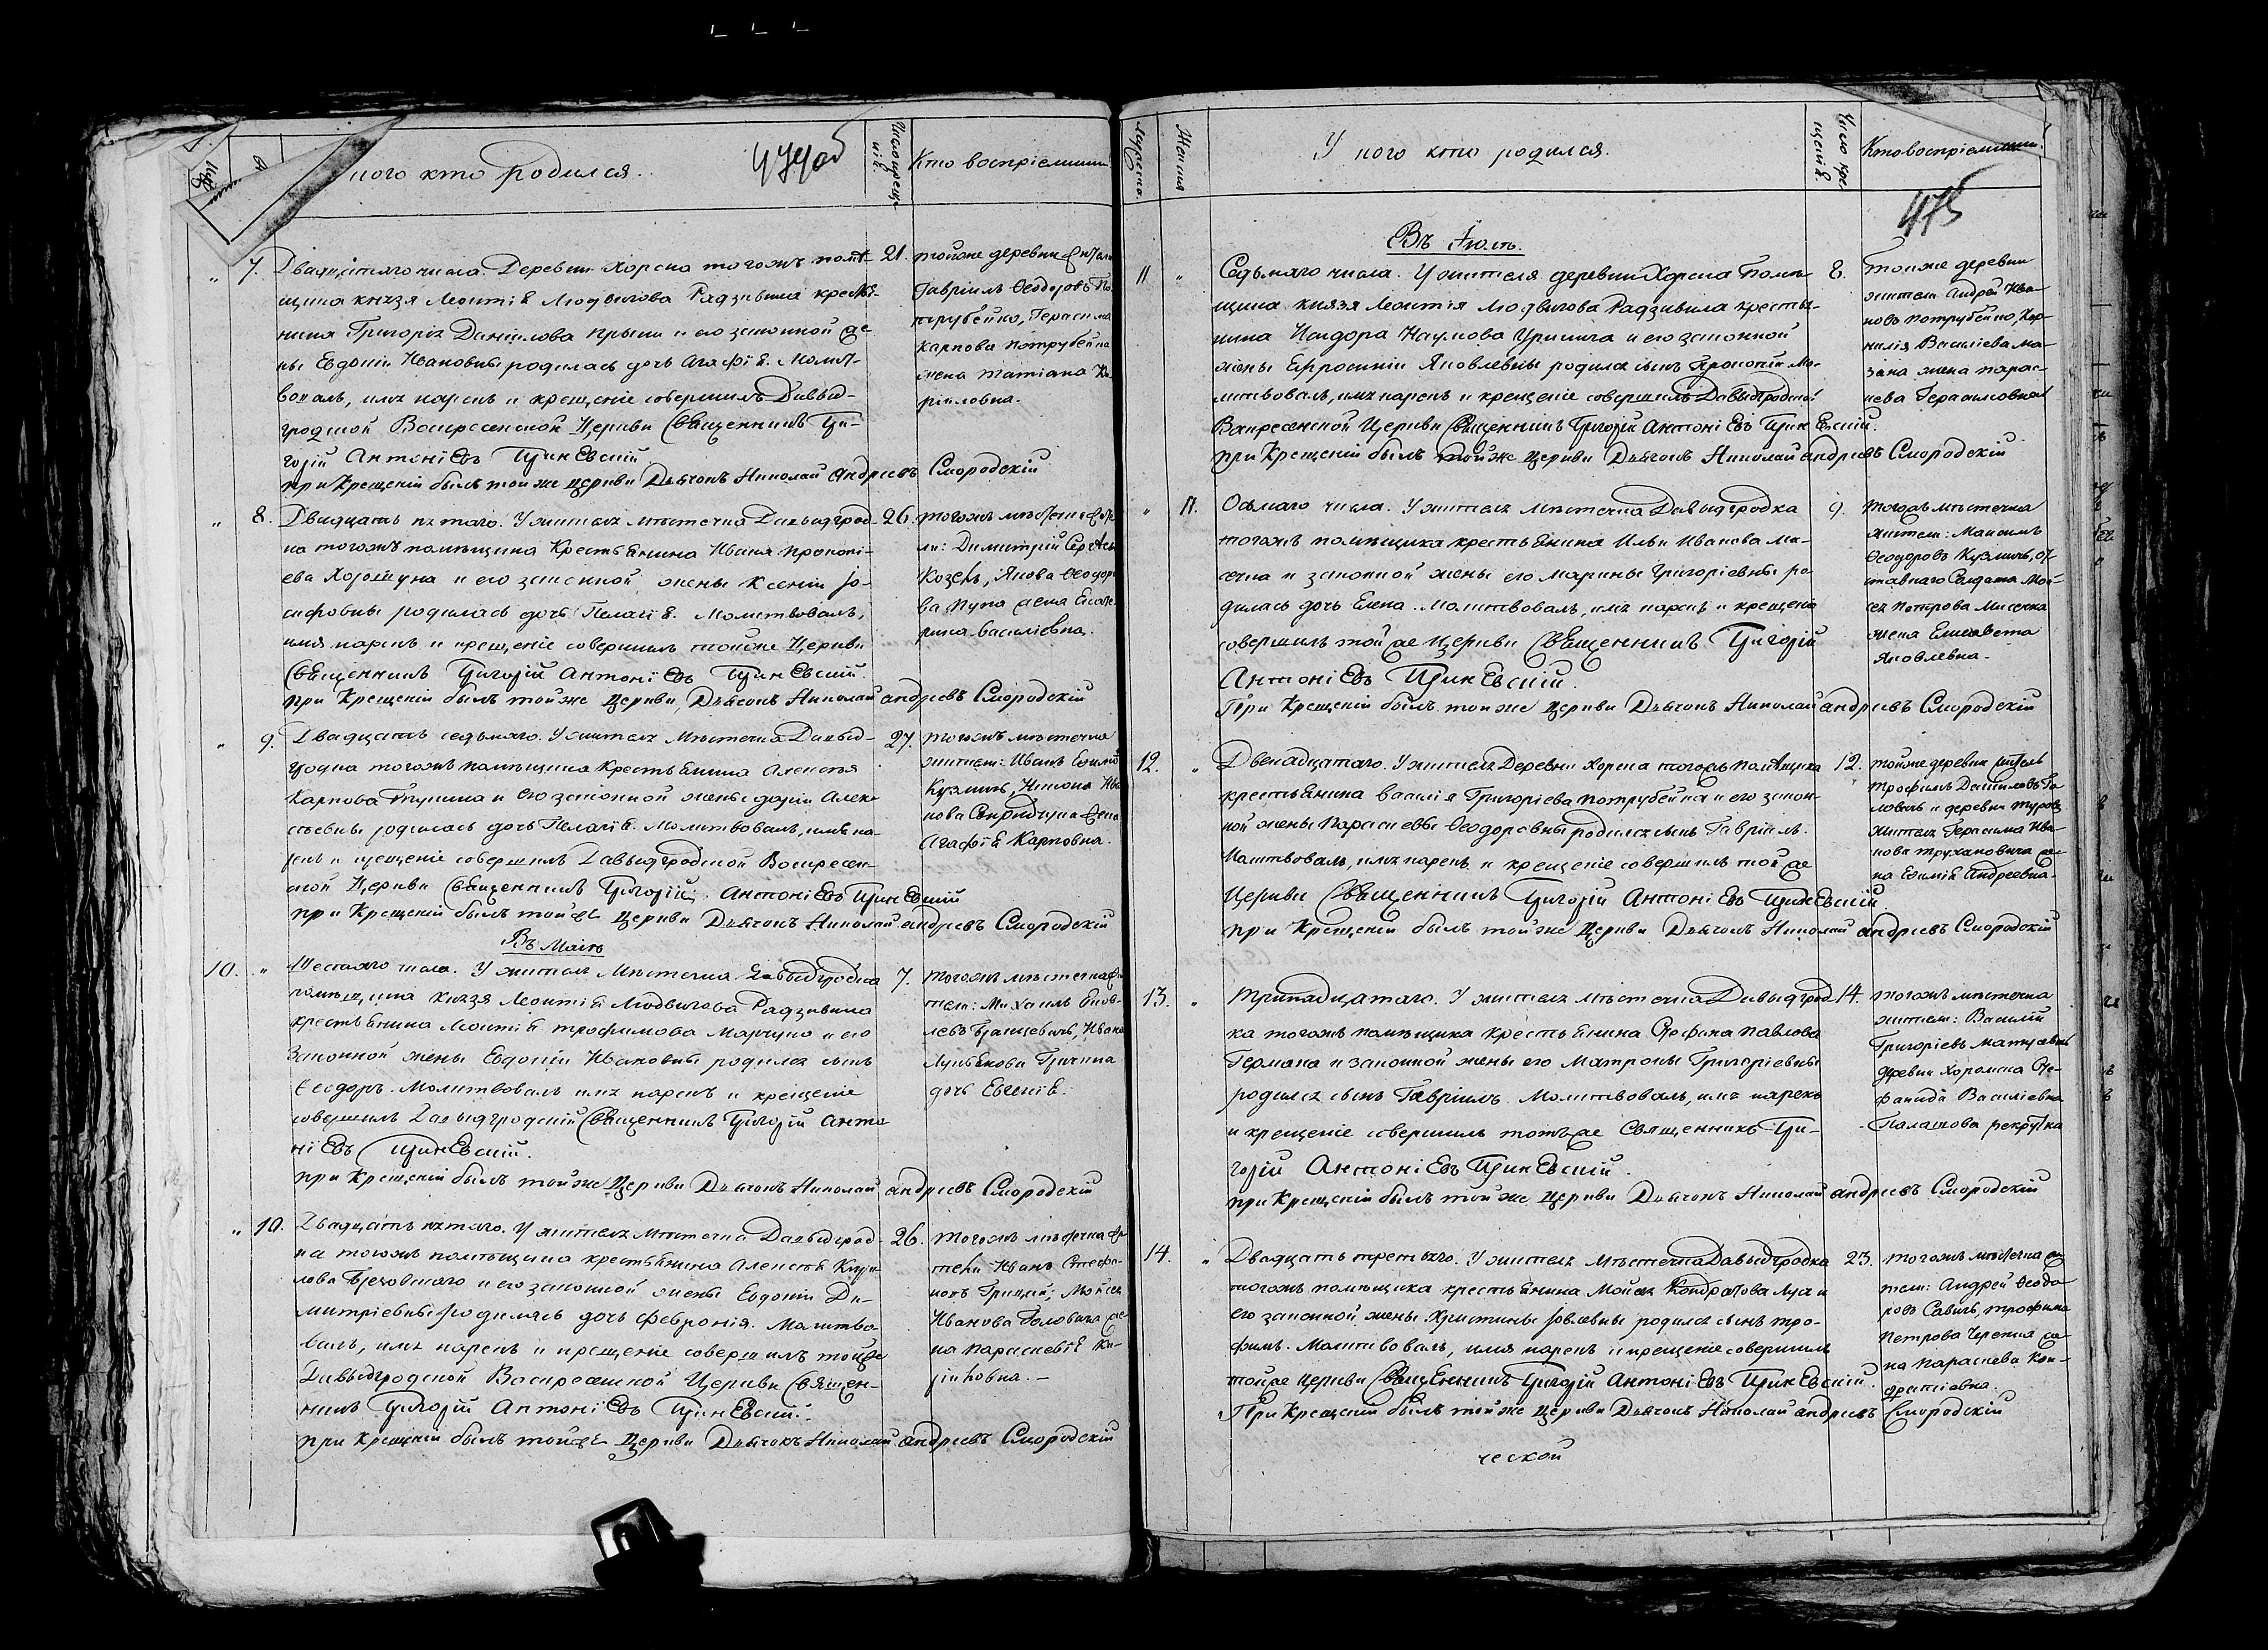 кого кто родился.
474 об
Число крещенія.
Кто воспріемники.
„ 7. Двадцятаго числа. Деревни Хорска тогожъ помѣ-
щика князя Леонтіѣ Людвигова Радзивила крестья-
нина Григорія Даніилова и его законной же-
ны Евдокіи Ивановны родилась дочь Агафіѣ. Молит-
вовалъ, имя нарекъ и крещеніе совершилъ Давыд-
гродской Воскресенской Церкви Священникъ Гри-
горій Антоніевъ Гриневскій
при Крещеніи былъ тойже церкви Дьячокъ Николай Андреевъ Смородскій
21. тойже деревни жители
Гавріилъ Ѳеодоровъ По-
трубейко, Герасима
Карпова Потрубейка
жена Татіана Ки-
риловна.
„ 8. Двадцать пятаго. У жителя мѣстечка Давыдгрод-
ка тогожъ помѣщика Крестьянина Ивана Прокопі-
ева Хорошуна и его законной жены Ксеніи Іо-
сифовны родилась дочь Пелагіѣ. Молитвовалъ,
имя нарекъ и крещеніе совершилъ тойже Церкви
Священникъ Григорій Антоніевъ Гриневскій.
при Крещеніи былъ тойже Церкви Дьячокъ Николай Андреевъ Смородскій
26. тогожъ мѣстечка жите-
ли: Димитрій
Козелъ, Якова Ѳеодоро-
ва Пупа жена Екате-
рина Василіевна.
„ 9. Двадцать седьмаго. У жителя Мѣстечка Давыд-
гродка тогожъ помѣщика Крестьянина Алексѣя
Карпова и его законной жены Дарии Алек-
сѣевны родилась дочь Пелагіѣ. Молитвовалъ, имя на-
рекъ и крещеніе совершилъ Давыдгродской Воскресен-
ской Церкви Священникъ Григорій Антоніевъ Гриневскій
при Крещеніи былъ тойже Церкви Дьячокъ Николай Андреевъ Смородскій
27. тогожъ мѣстечка
жители: Иванъ
Кузмичъ, Ива-
нова жена
Агафіѣ Карповна.
Въ Маіѣ
10. „ Шестаго числа. У жителя Мѣстечка Давыдгродка
помѣщика Князя Леонтіѣ Людвигова Радзивила
крестьянина Леонтіѣ Трофимова Марчука и его
Законной жены Евдокіи Ивановны родился сынъ
Ѳеодоръ. Молитвовалъ имя нарекъ и крещеніе
совершилъ Давыдгродскій Священникъ Григорій Анто
ніевъ Гриневскій.
при Крещеніи былъ тойже Церкви Дьячокъ Николай Андреевъ Смородскій
7. тогожъ мѣстечка жи-
тели: Михаилъ Яков-
левъ Ивана
Лукьянова Гричина
дочь Евгеніѣ.
„ 10. Двадцать пятаго. У жителя Мѣстечка Давыдгрод-
ка тогожъ помѣщика крестьянина Алексѣѣ Кири-
лова Бреховскаго и его законной жены Евдокіи Ди-
митріевны родилась дочь Февронія. Молитво-
валъ, имя нарекъ и крещеніе совершилъ тойже
Давыдгродской Воскресенской Церкви Священ-
никъ Григорій Антоніевъ Гриневскій.
при Крещеніи былъ тойже Церкви Дьячокъ Николай Андреевъ Смородскій
26. тогожъ мѣстечка жи-
тели Иванъ Стефа-
новъ Грицкій, Мойсея
Иванова Головача же-
на Параскевіѣ Ки-
риловна. —
Мужеска.
Женска
У кого кто родился.
Число кре-
щеніѣ.
Кто воспріемники.
475
Въ Іюлѣ.
11 „ Седьмаго числа. У жителя деревни Хорска Помѣ-
щика князя Леонтія Людвигова Радзивила крестья-
нина Исидора Наумова и его законной
жены Ефросиніи Яковлевны родился сынъ Прокопій. Мо-
литвовалъ, имя нарекъ и крещеніе совершилъ Давыдгродской
Воскресенской Церкви Священникъ Григорій Антоніевъ Гриневскій.
при Крещеніи былъ тойже Церкви Дьячокъ Николай Андреевъ Смородскій
8. тойже деревни
жители Андрей Ива-
новъ Потрубейко, Кор-
нилія Василіева Ма-
зана жена Парас-
кева Герасимовна
„ 11. Осьмаго числа. У жителя Мѣстечка Давыдгродка
тогожъ помѣщика крестьянина Ильи Иванова Ми-
сечка и законной жены его Марины Григоріевны ро-
дилась дочь Елена. Молитвовалъ, имя нарекъ и крещеніе
совершилъ тойже Церкви Священникъ Григорій
Антоніевъ Гриневскій.
При Крещеніи былъ тойже Церкви Дьячокъ Николай Андреевъ Смородскій
9. тогожъ мѣстечка
жители: Максимъ
Ѳеодоровъ Кузмичъ, от-
ставнаго Солдата Мой-
сея Петрова Мисечка
жена Елисавета
Яковлевна.
12. „ Двенадцатаго. У жителя Деревни Хорска тогожъ помѣщика
крестьянина Василія Григоріева Потрубейка и его закон-
ной жены Параскевы Ѳеодоровны родился сынъ Гавріилъ.
Молитвовалъ, имя нарекъ и крещеніе совершилъ тойже
Церкви Священникъ Григорій Антоніевъ Гриневскій.
при Крещеніи былъ тойже Церкви Дьячокъ Николай Андреевъ Смородскій
12. тойже деревни житель
Трофимъ Даниловъ Го-
ловачъ и деревни Туровъ
жителя Герасима Ива-
нова Трухановича же-
на Евфиміѣ Андреевна.
13. „ Тринадцатаго. У жителя мѣстечка Давыдгрод-
ка тогожъ помѣщика крестьянина Стефана Павлова
Германа и законной жены его Матроны Григоріевны
родился сынъ Гавріилъ. Молитвовалъ, имя нарекъ
и крещеніе совершилъ тотъже Священникъ Гри-
горій Антоніевъ Гриневскій.
при Крещеніи былъ тойже Церкви Дьячокъ Николай Андреевъ Смородскій
14. тогожъ мѣстечка
жители: Василій
Григоріевъ
деревни Хоромска Сте-
фанида Василіевна
Палашова рекрутка
14. „ Двадцать третьяго. У жителя Мѣстечка Давыдгродка
тогожъ помѣщика крестьянина Мойсея Кондратова и
его законной жены Христины Іовлевны родился сынъ Тро-
фимъ. Молитвовалъ, имя нарекъ и крещеніе совершилъ
тойже Церкви Священникъ Григорій Антоніевъ Гриневскій.
При Крещеніи былъ тойже Церкви Дьячокъ Николай Андреевъ Смородскій
23. тогожъ мѣстечка жи-
тели: Андрей Ѳеодо-
ровъ Савичъ, Трофима
Петрова же-
на Параскева Кон-
дратіевна.
ческой